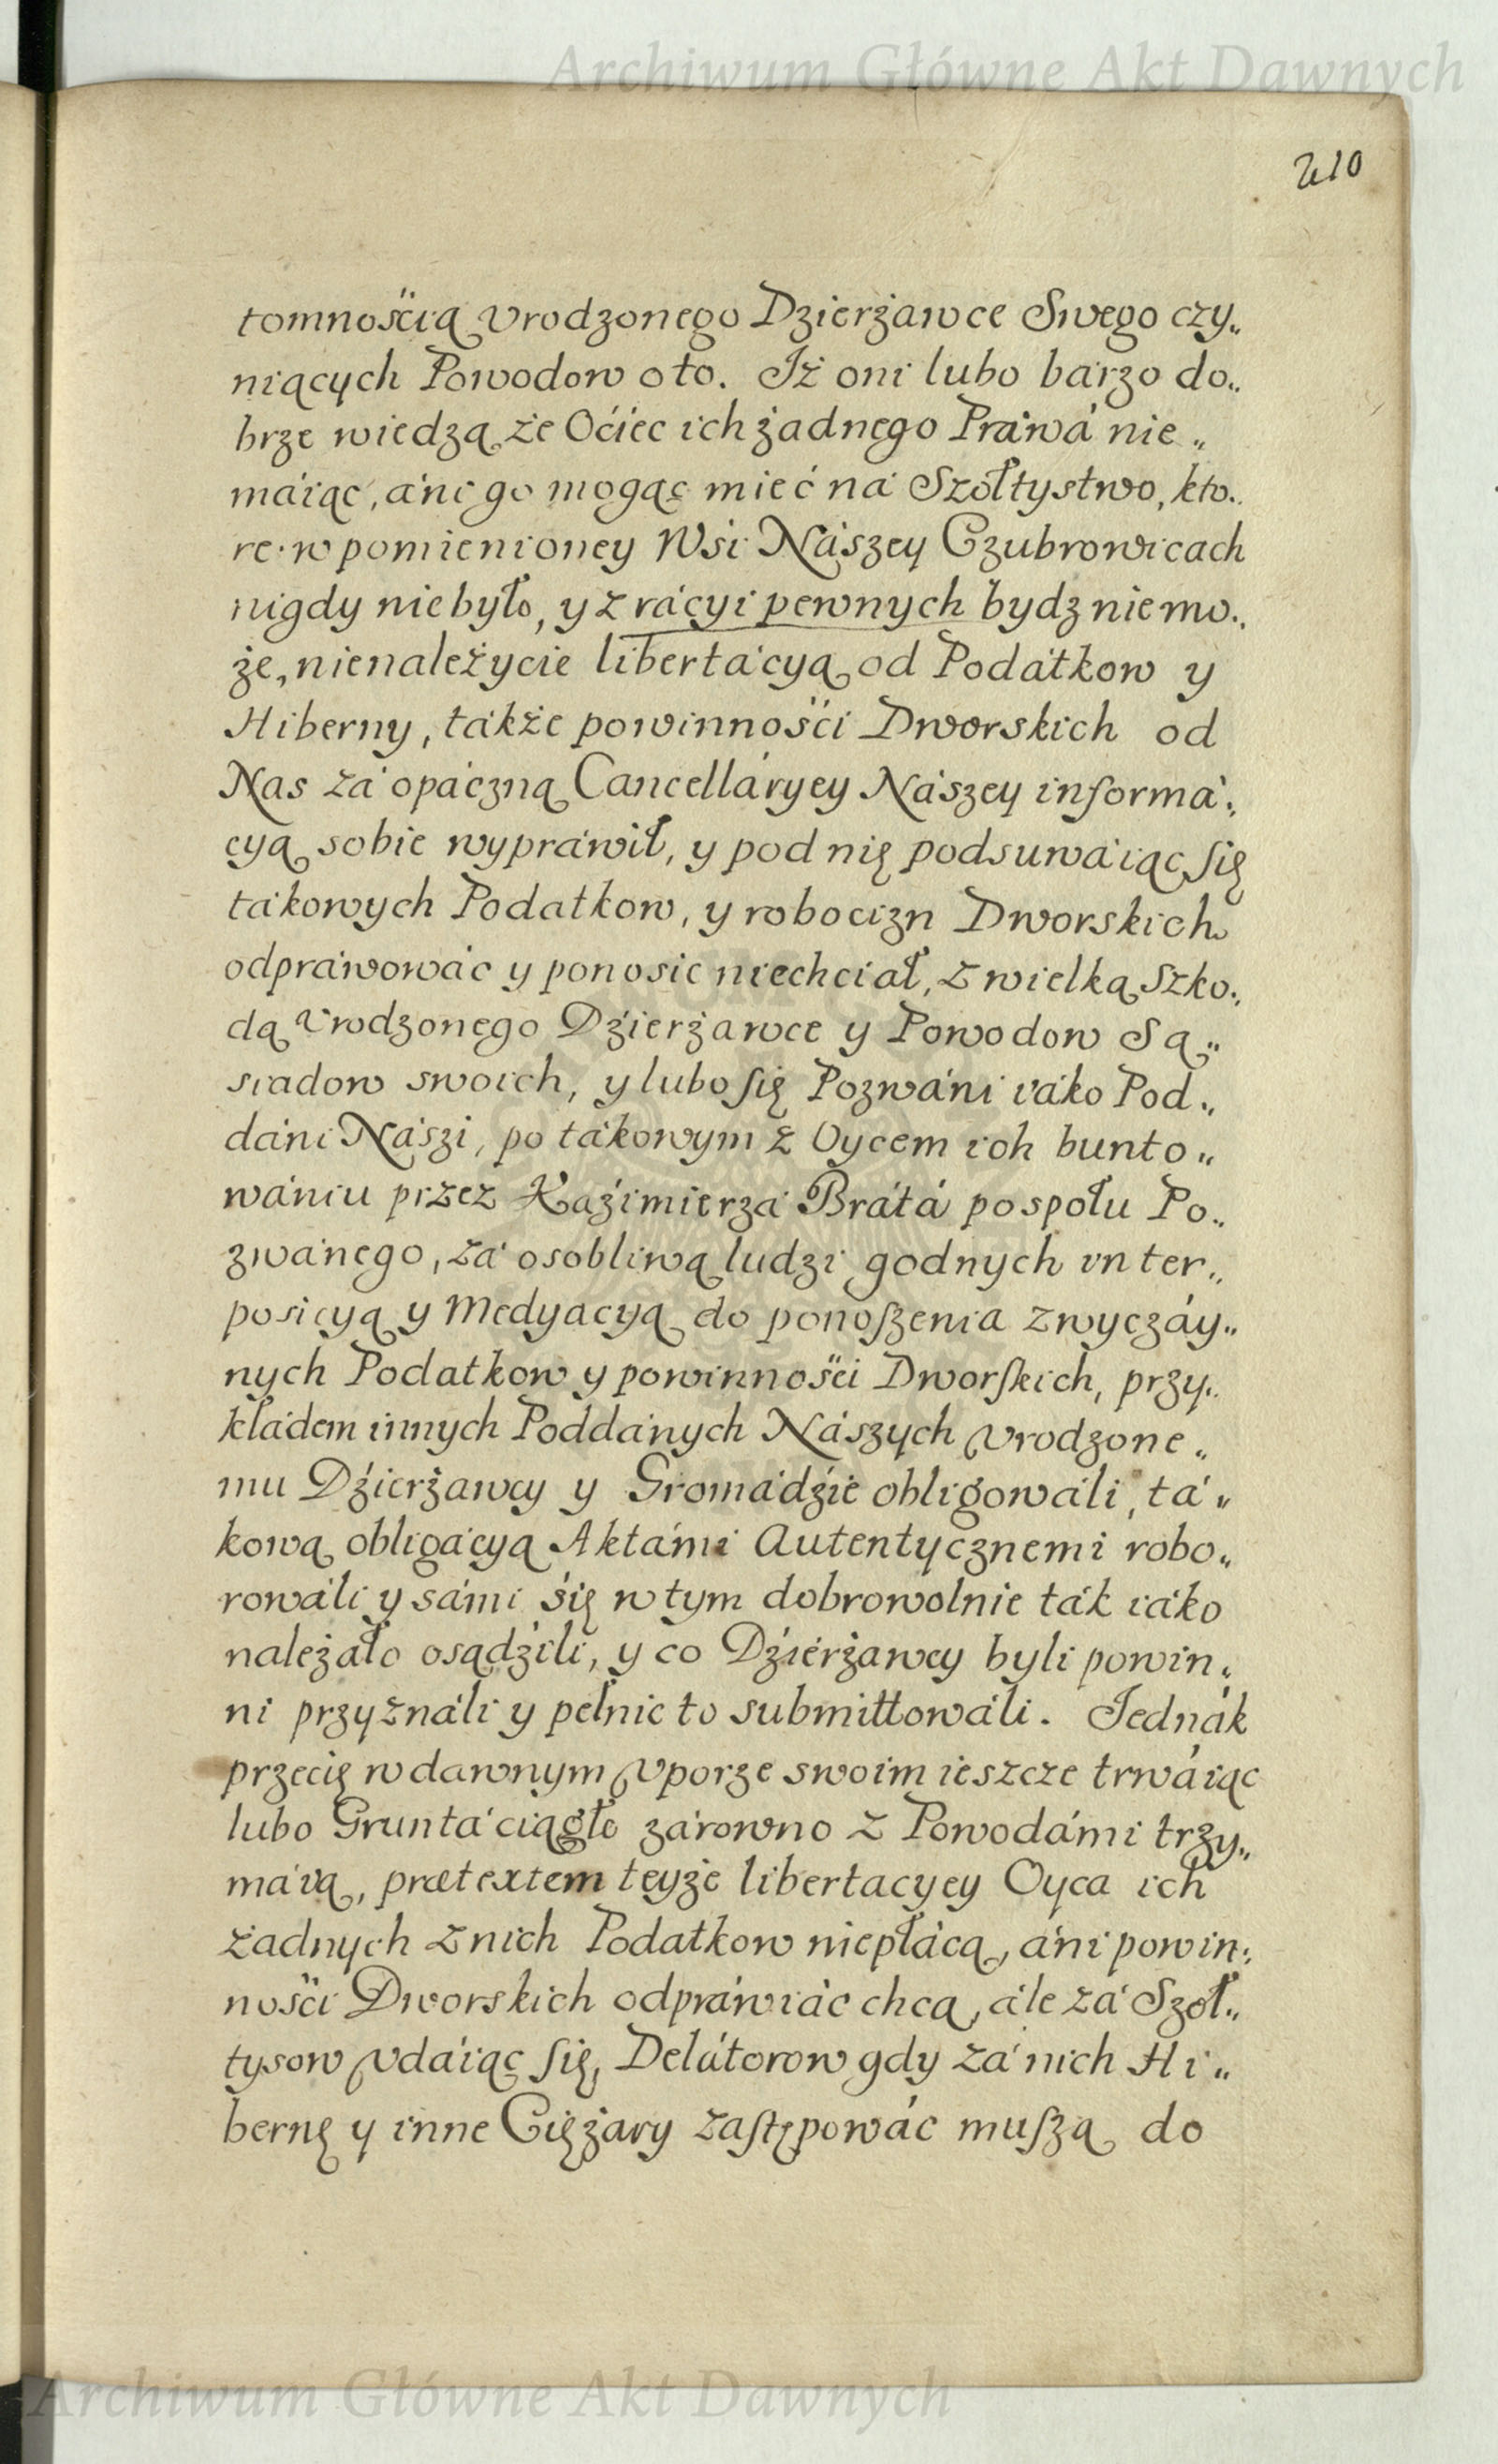 Archiwum Główne Akt Dawnych
210
tomnośćią Vrodzonego Dzierżawce Swego czy„
niących Powodow oto. Iż oni lubo bárzo do„
brze wiedzą że Oćiec ich żadnego Práwá nie„
máiąc, áni go mogąc mieć ná Szołtystwo, kto„
re w pomienioney Wsi Nászey Czubrowicach
nigdy niebyło, y z rácyi pewnych bydz niemo„
że, nienależycie libertácyą od Podátkow y
Hiberny, tákże powinnośći Dworskich od
Nas zá opáczną Cancelláryey Nászey informá„
cyą sobie wypráwił, y pod nię podsuwáiąc się
tákowych Podatkow, y robocizn Dworskich
odpráwowáć y ponosic niechciał, z wielką Szko„
dą Vrodzonego Dźierżawce y Powodow Są„
siadow swoich, y lubo się Pozwáni iáko Pod„
dáni Nászi, po tákowym z Oycem ich bunto„
wániu przez Kaźimierzá Brátá pospołu Po„
zwánego, zá osobliwą ludzi godnych inter„
posicyą y Medyacyą do ponoszenia zwyczáy„
nych Podatkow y powinnośći Dworskich, przy„
kładem innych Poddánych Nászych Vrodzone„
mu Dźierżawcy y Gromádźie obligowáli, tá„
kową obligácyą Aktámi Autentycznemi robo„
rowáli y sámi się w tym dobrowolnie ták iáko
należáło osądźili, y co Dźierżawcy byli powin„
ni przyználi y pełnic to submittowáli. Jednák
przecię w dawnym Vporze swoim ieszcze trwáiąc
lubo Gruntá ciągło zárowno z Powodámi trzy„
máią, prætextem teyże libertacyey Oyca ich
żadnych z nich Podatkow niepłácą, áni powin„
nośći Dworskich odpráwiáć chcą, ále zá Szoł„
tysow Vdáiąc się, Delátorow gdy zá nich Hi„
bernę y inne Ciężary zastępowáć muszą do
Archiwum Główne Akt Dawnych